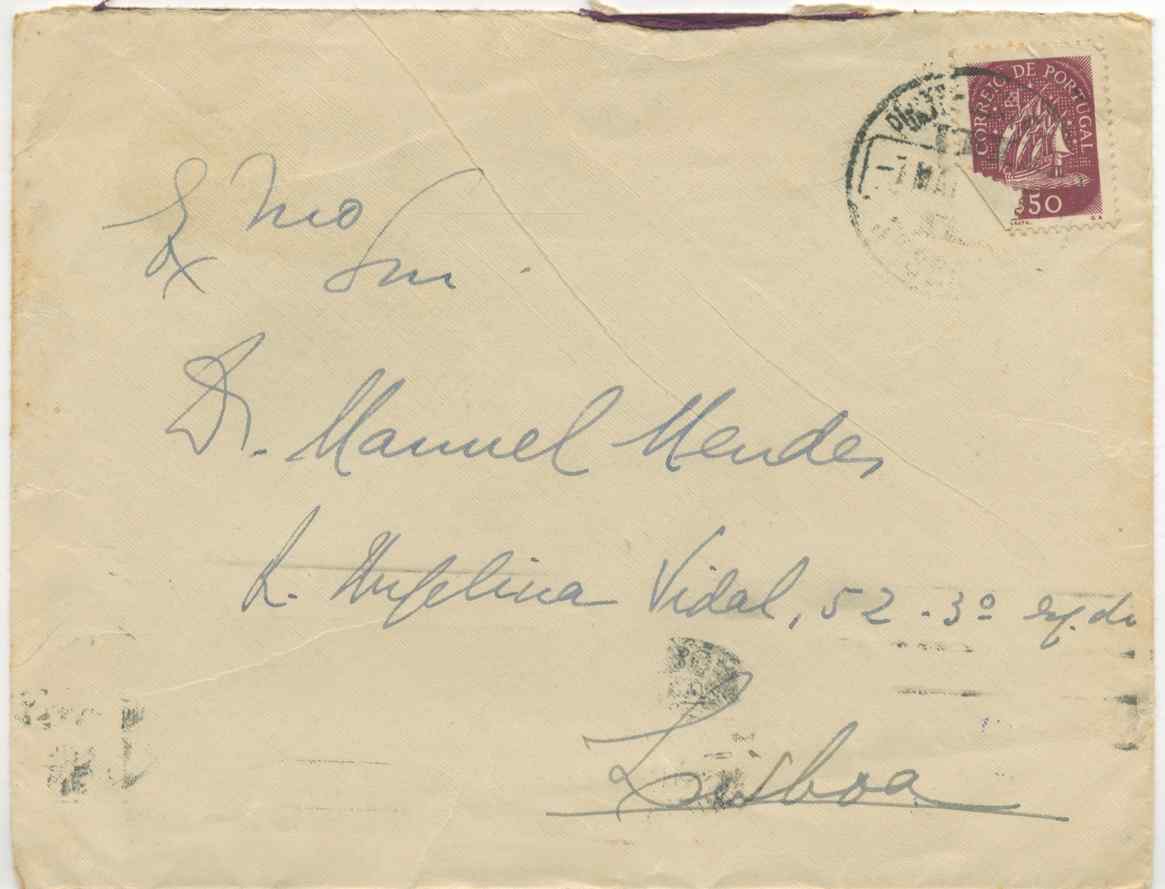 CORREIO DE PORTUGAL
$50
Exmo
Snr.
Dr. Manuel Mendes
R. Angelina Vidal, 52-3º esq.do
Lisboa